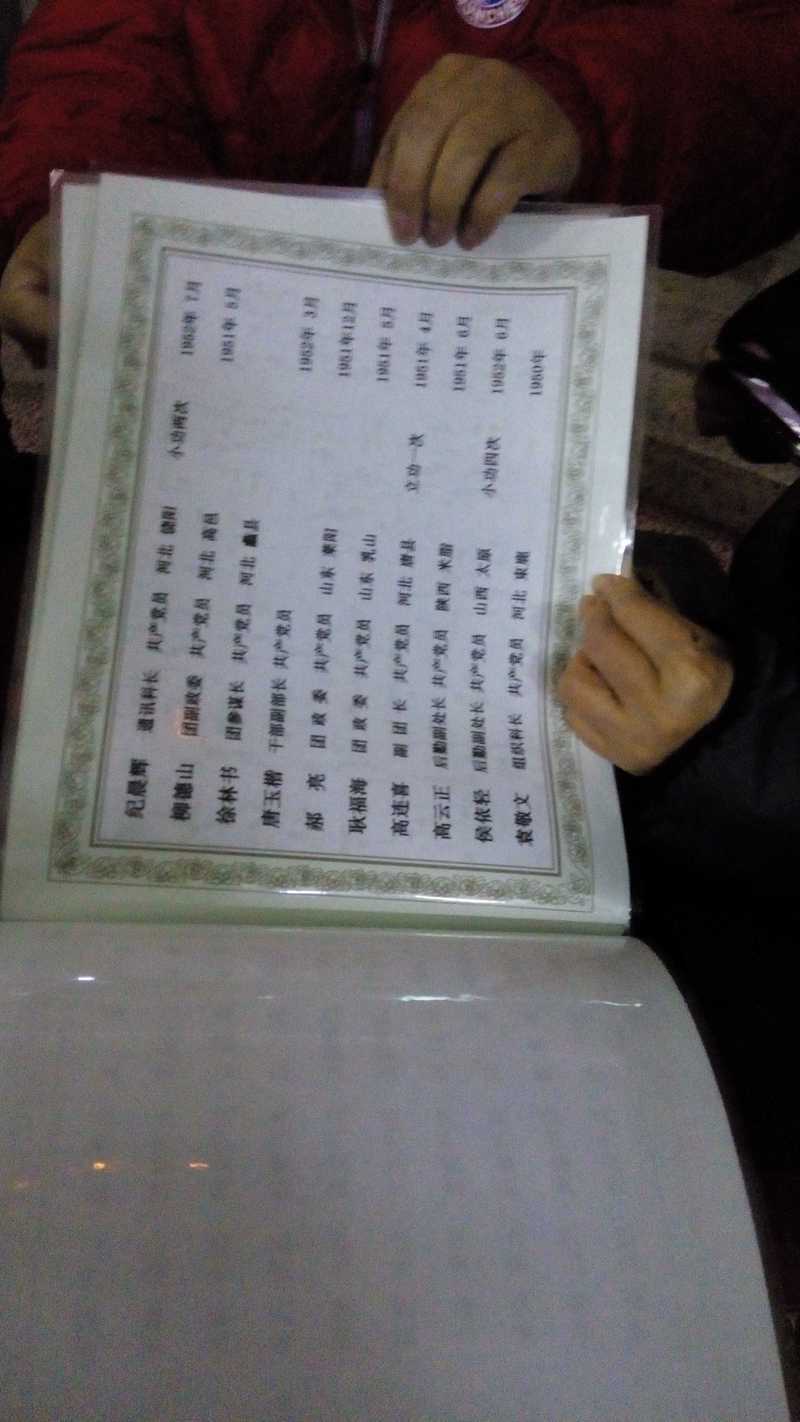 纪晨辉 通讯科长 共产党员 河北 饶阳 小功两次 1952年 7月
柳德山 团副政委 共产党员 河北 高邑 1951年 5月
徐林书 团参谋长 共产党员 河北 蠡县
唐玉楷 干部副部长 共产党员 1952年 3月
郝 亮 团 政 委 共产党员 山东 莱阳 1951年12月
耿福海 团 政 委 共产党员 山东 乳山 1951年 5月
高连喜 副 团 长 共产党员 河北 唐县 立功一次 1951年 4月
高云正 后勤副处长 共产党员 陕西 米脂 1951年 6月
侯依轻 后勤副处长 共产党员 山西 太原 小功四次 1952年 6月
袁敬文 组织科长 共产党员 河北 束鹿 1950年